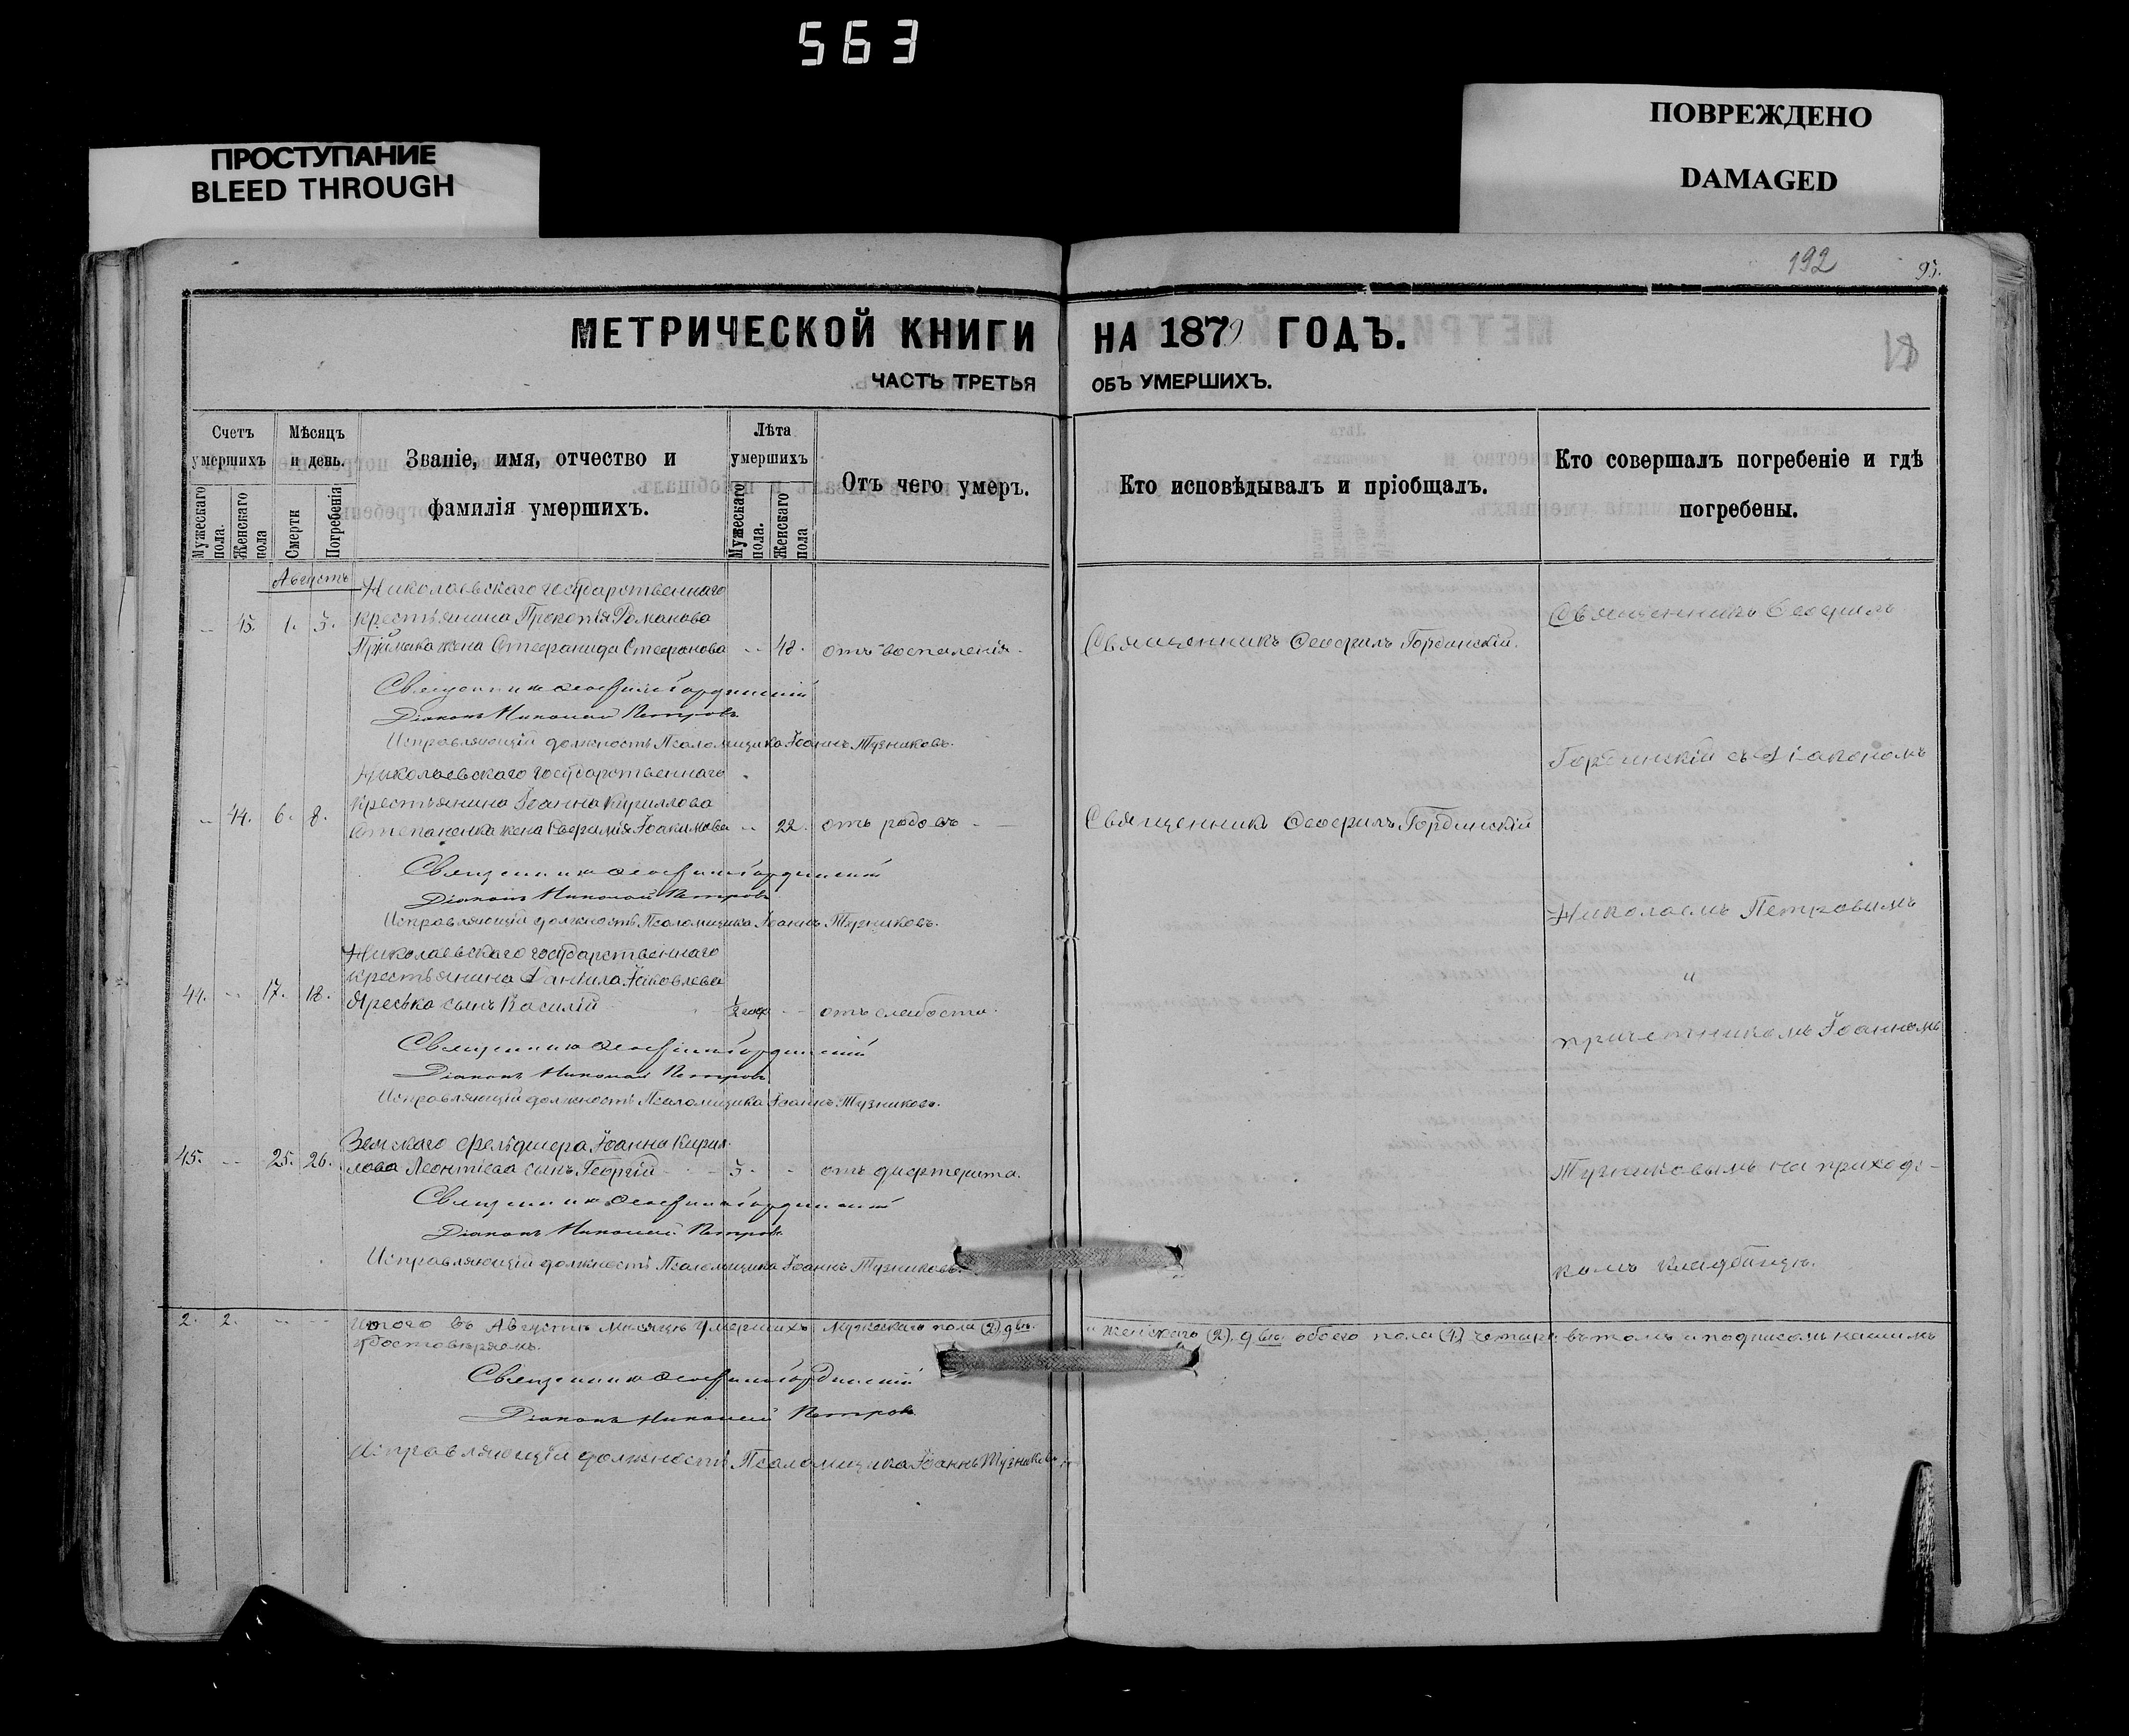 563
ПРОСТУПАНИЕ
BLEED THROUGH
ПОВРЕЖДЕНО
DAMAGED
192
95.
МЕТРИЧЕСКОЙ КНИГИ НА 1879 ГОДЪ.
ЧАСТЬ ТРЕТЬЯ ОБЪ УМЕРШИХЪ.
Счетъ умершихъ
Мужескаго пола.
Женскаго пола
Мѣсяцъ и день.
Смерти
Погребенія
Званіе, имя, отчество и
фамилія умершихъ.
Лѣта умершихъ
Мужескаго пола.
Женскаго пола
Отъ чего умеръ.
Кто исповѣдывалъ и пріобщалъ.
Кто совершалъ погребеніе и гдѣ
погребены.
Августъ
Николаевскаго государственнаго
крестьянина Прокопія Романова
Стефанида Стефанова 48. отъ воспаленія. Священникъ Ѳеофилъ Гординскій.
Священникъ Ѳеофилъ
Священникъ Ѳеофилъ Гординскій
Діаконъ Николай Петровъ
Исправляющій должность Псаломщика Іоаннъ Тузниковъ.
Гординскій съ Діакономъ
Николаевскаго государственнаго
44. 6. 8. крестьянина Іоанна Кириллова
Степаненка жена Евфимія Іоакимова 22. отъ родовъ Священникъ Ѳеофилъ Гординскій
Священникъ Ѳеофилъ Гординскій
Діаконъ Николай Петровъ
Исправляющій должность Псаломщика Іоаннъ Тузниковъ.
Николаемъ Петровымъ
и
Николаевскаго государственнаго
крестьянина Даніила Іаковлева
44. 17. 18. Яреська сынъ Василій 1/2 года отъ слабости.
причетникомъ Іоанномъ
Священникъ Ѳеофилъ Гординскій
Діаконъ Николай Петровъ
Исправляющій должность Псаломщика Іоаннъ Тузниковъ.
Земскаго фельдшера Іоанна Кирил-
45. 25. 26. лова Леонтіева сынъ Георгій 5. отъ дифтерита.
Тузниковымъ на приходс-
Священникъ Ѳеофилъ Гординскій
Діаконъ Николай Петровъ
Исправляющій должность Псаломщика Іоаннъ Тузниковъ.
комъ кладбищѣ.
2. 2. Итого въ Августѣ мѣсяцѣ умершихъ мужескаго пола (2) два. и женскаго (2) двѣ обоего пола (4) четыре въ томъ и подписомъ нашимъ
удостовѣряемъ.
Священникъ Ѳеофилъ Гординскій
Діаконъ Николай Петровъ
Исправляющій должность Псаломщика Іоаннъ Тузниковъ